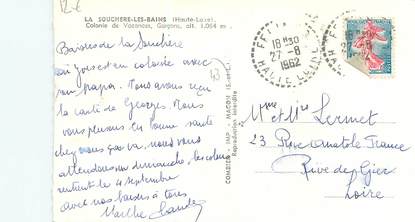 12 €
LA SOUCHERE-LES-BAINS (Haute-Loire)
Colonie de Vacances, Garçons, alt. 1.064 m.
18H30
27-8
1962
HAUTE LOIRE
Baisers de la Souchère
est en colonie avec
son papa. Nous avons reçu
la carte de Georges. Nous
vous pensons en bonne santé
chez nous ça va. nous vous
attendons dimanche, les colons
rentrent le 4 septembre
avec nos baisers à tous
COMBIER - IMP - MACON (S.-et-L.)
Reproduction interdite
Mme et Mr Sermet
23 Rue Anatole France
Rive de Gier
Loire